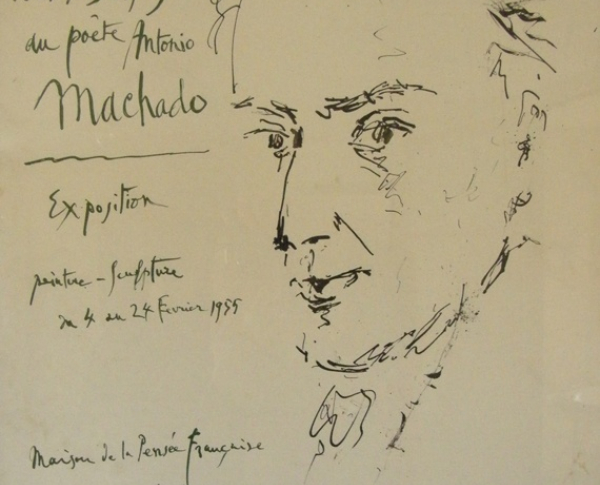 du poète Antonio
Machado
Exposition
peinture - Sculpture
du 4 au 24 Fevrier 1955
Maison de la Pensée Française